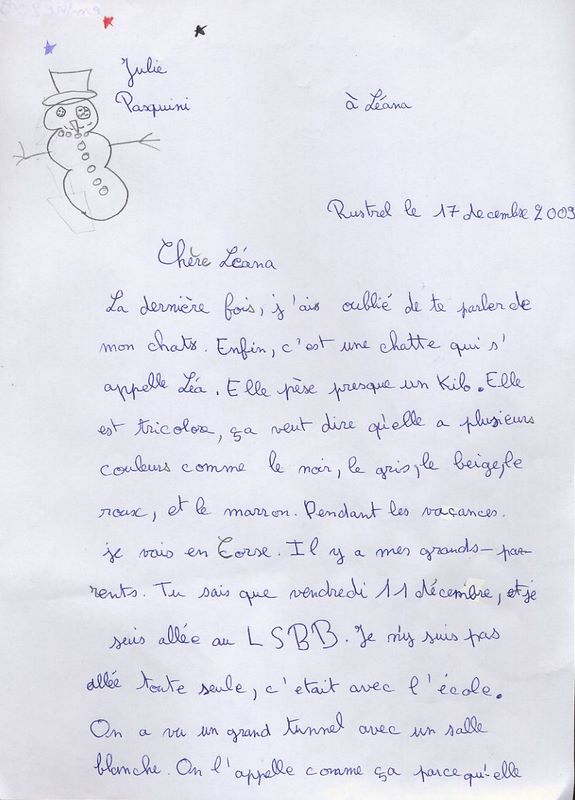 Julie
Pasquini
à Léana
Rustrel le 17 decembre 2009
Chère Léana
La dernière fois, j'ais oublié de te parler de
mon chats. Enfin, c'est une chatte qui s'
appelle Léa. Elle pèse presque un Kilo. Elle
est tricolor, ça veut dire qu'elle a plusieurs
couleurs comme le noir, le gris, le beige, le
roux, et le marron. Pendant les vacances.
je vais en Corse. Il y a mes grands-pa-
rents. Tu sais que vendredi 11 décembre, je
suis allée au LSBB. Je n'y suis pas
allée toute seule, c'etait avec l'école.
On a vu un grand tunnel avec un salle
blanche. On l'appelle comme ça parce qu'elle